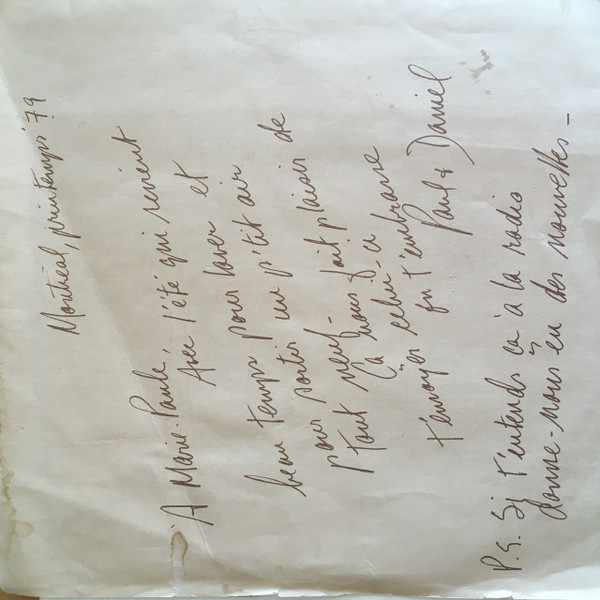 Montréal, printemps '79
À Marie-Paule,
Avec l'été qui revient
beau temps pour laver et
pour sortir un p'tit air
tout neuf -
Ça nous fait plaisir de
t'envoyer celui-ci
on t'embrasse
Paul & Daniel
P.S. Si t'entends ça à la radio
donne-nous en des nouvelles -